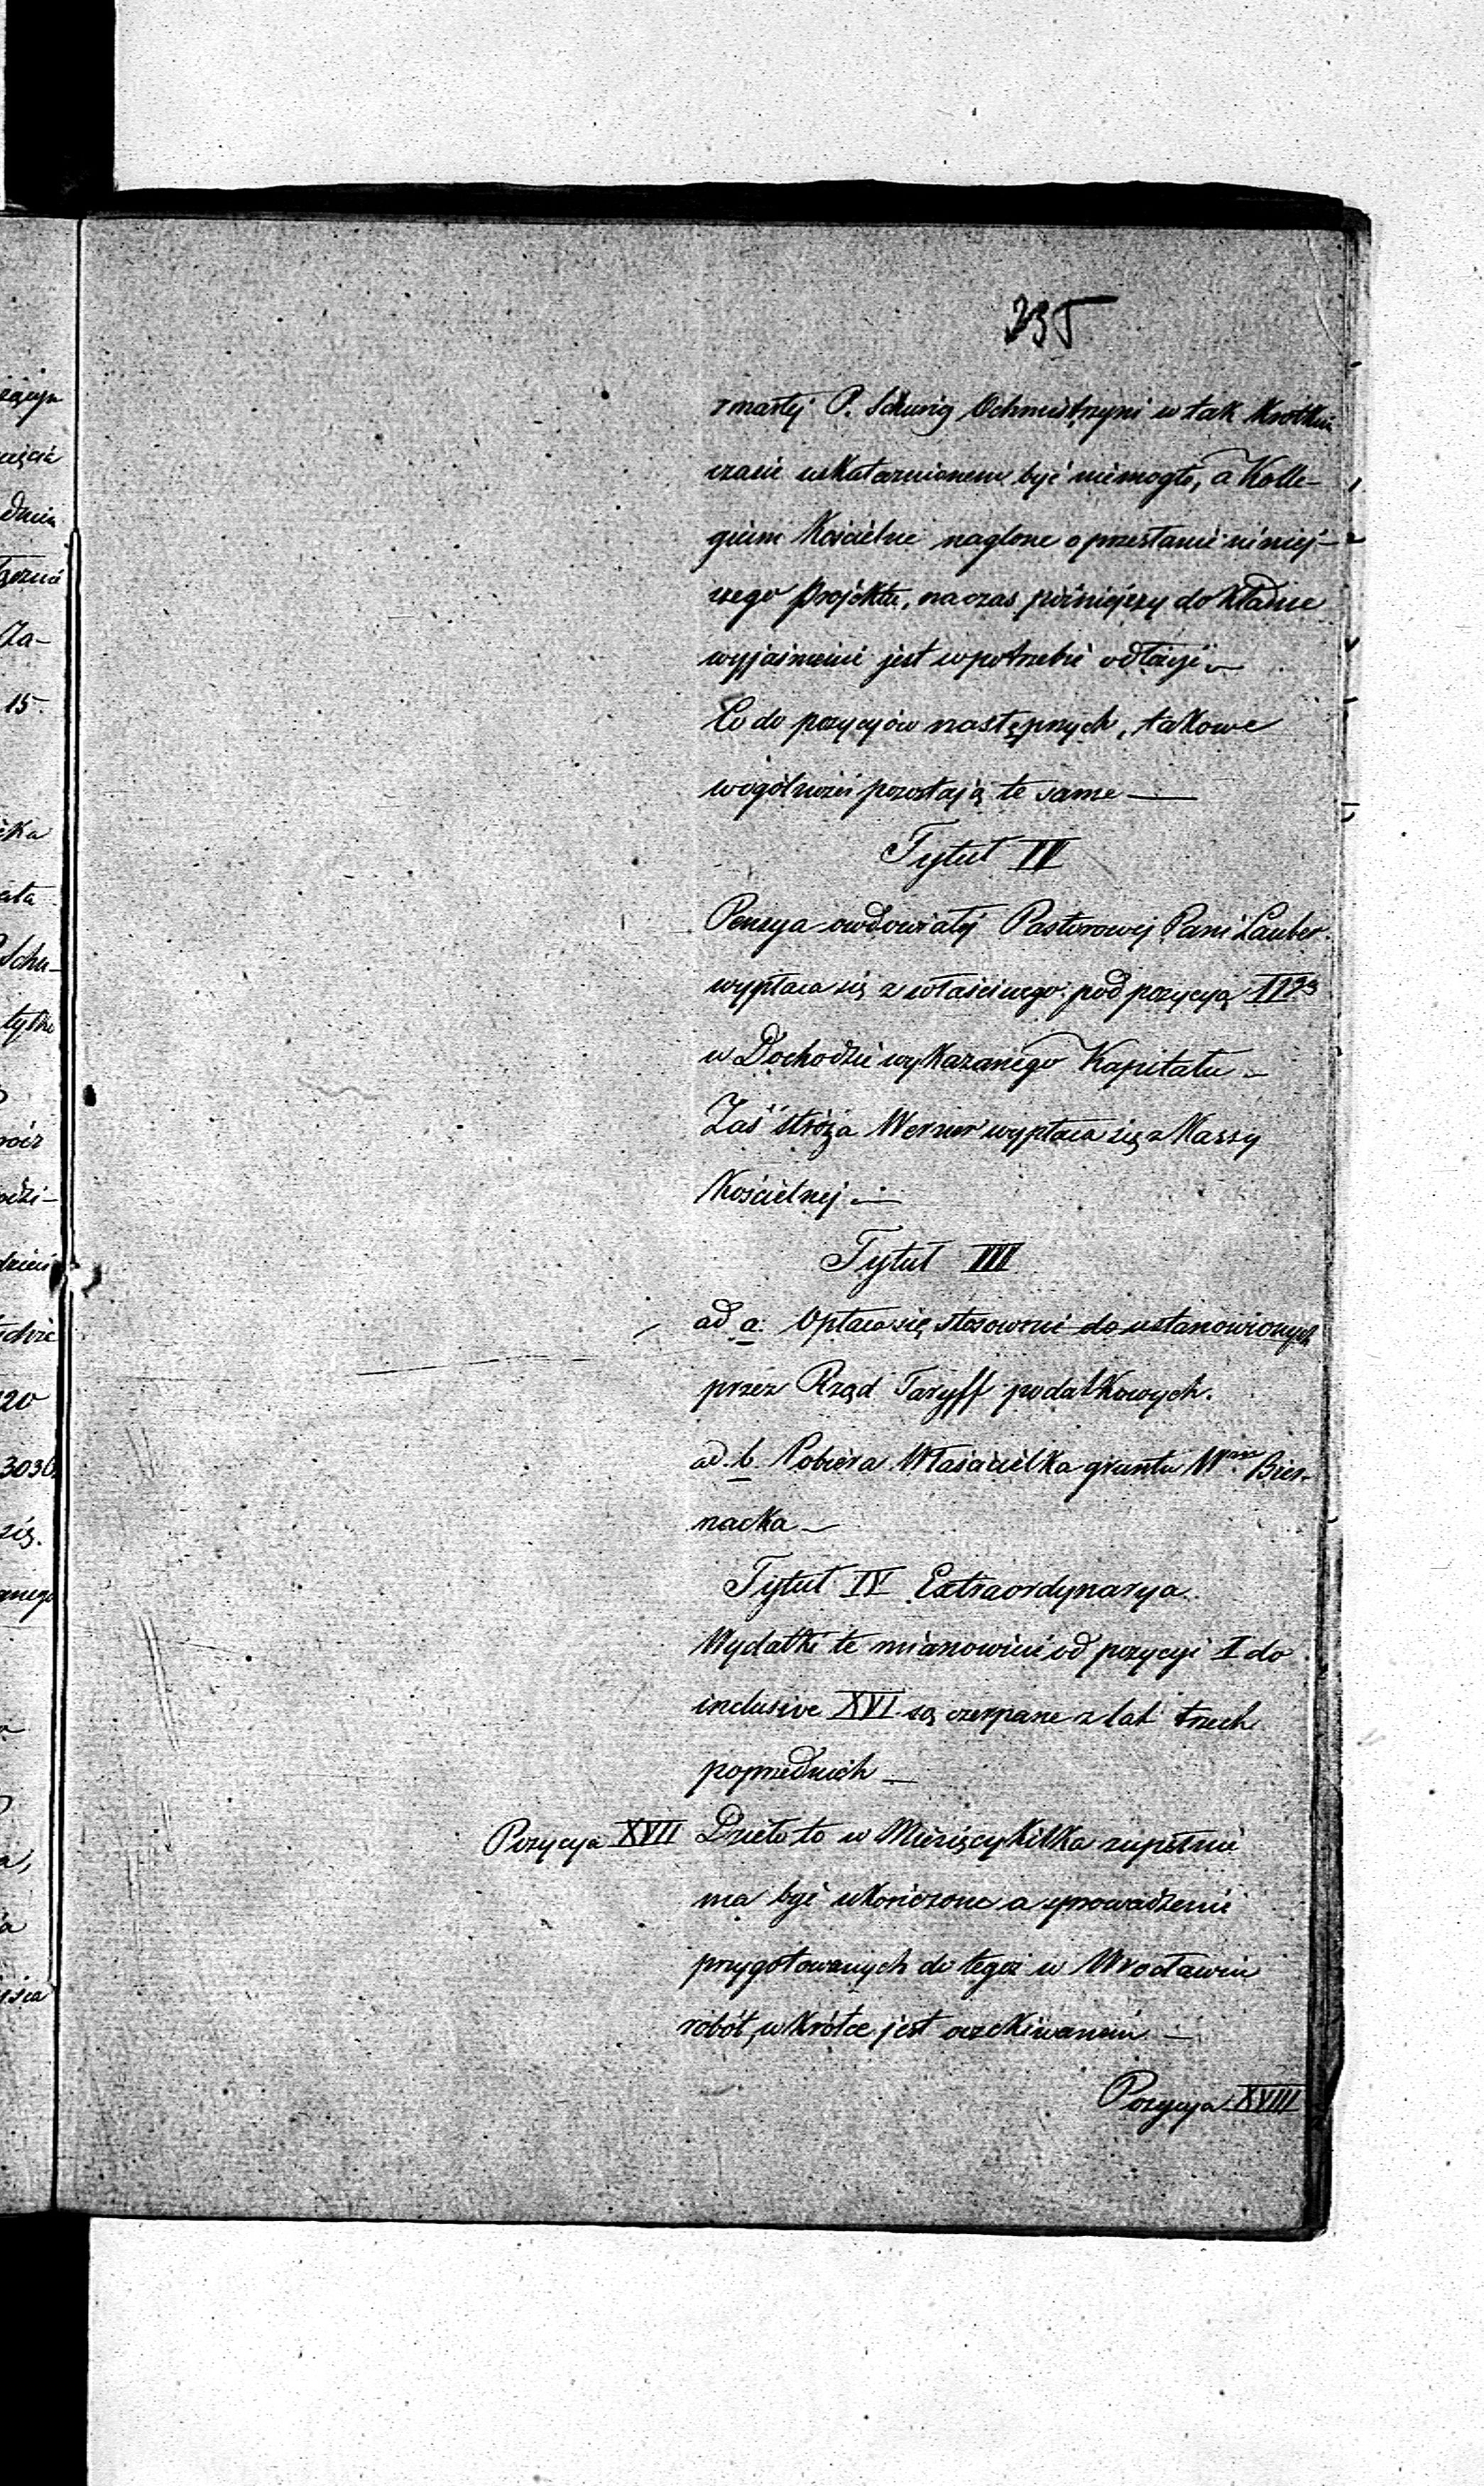 235
zmarłej P. Schurig Ochmistrzyni w tak krótkim
czasie uskutecznionem być niemogło, a Kolle-
gium Kościelne naglone o przesłanie niniej-
szego projektu, na czas późniejszy dokładne
wyjaśnienie jest w potrzebie odłożyć
Co do pozycyów następnych, takowe
w ogólności pozostają te same —
Tytuł II
Pensya owdowiałej Pastorowej Pani Lauber
wypłaca się z właściwego pod pozycyą II
w Dochodzie wykazanego Kapitału —
Zaś stróża Werner wypłaca się z Kassy
Kościelnej —
Tytuł III
ad a. Opłaca się stosownie do ustanowionych
przez Rząd Taryff podatkowych.
ad b. Pobiera Właścicielka gruntu Bier-
nacka —
Tytuł IV Extraordynarya
Wydatki te mianowicie od pozycyi I do
inclusive XVI są czerpane z lat trzech
poprzednich —
Pozycya XVII Dzieło to w Miesięcy kilka zupełnie
ma być ukończone a sprowadzenie
przygotowanych do tegoż w Wrocławiu
robót, wkrótce jest oczekiwanem —
Pozycya XVIII
15.
Schu-
120
3030